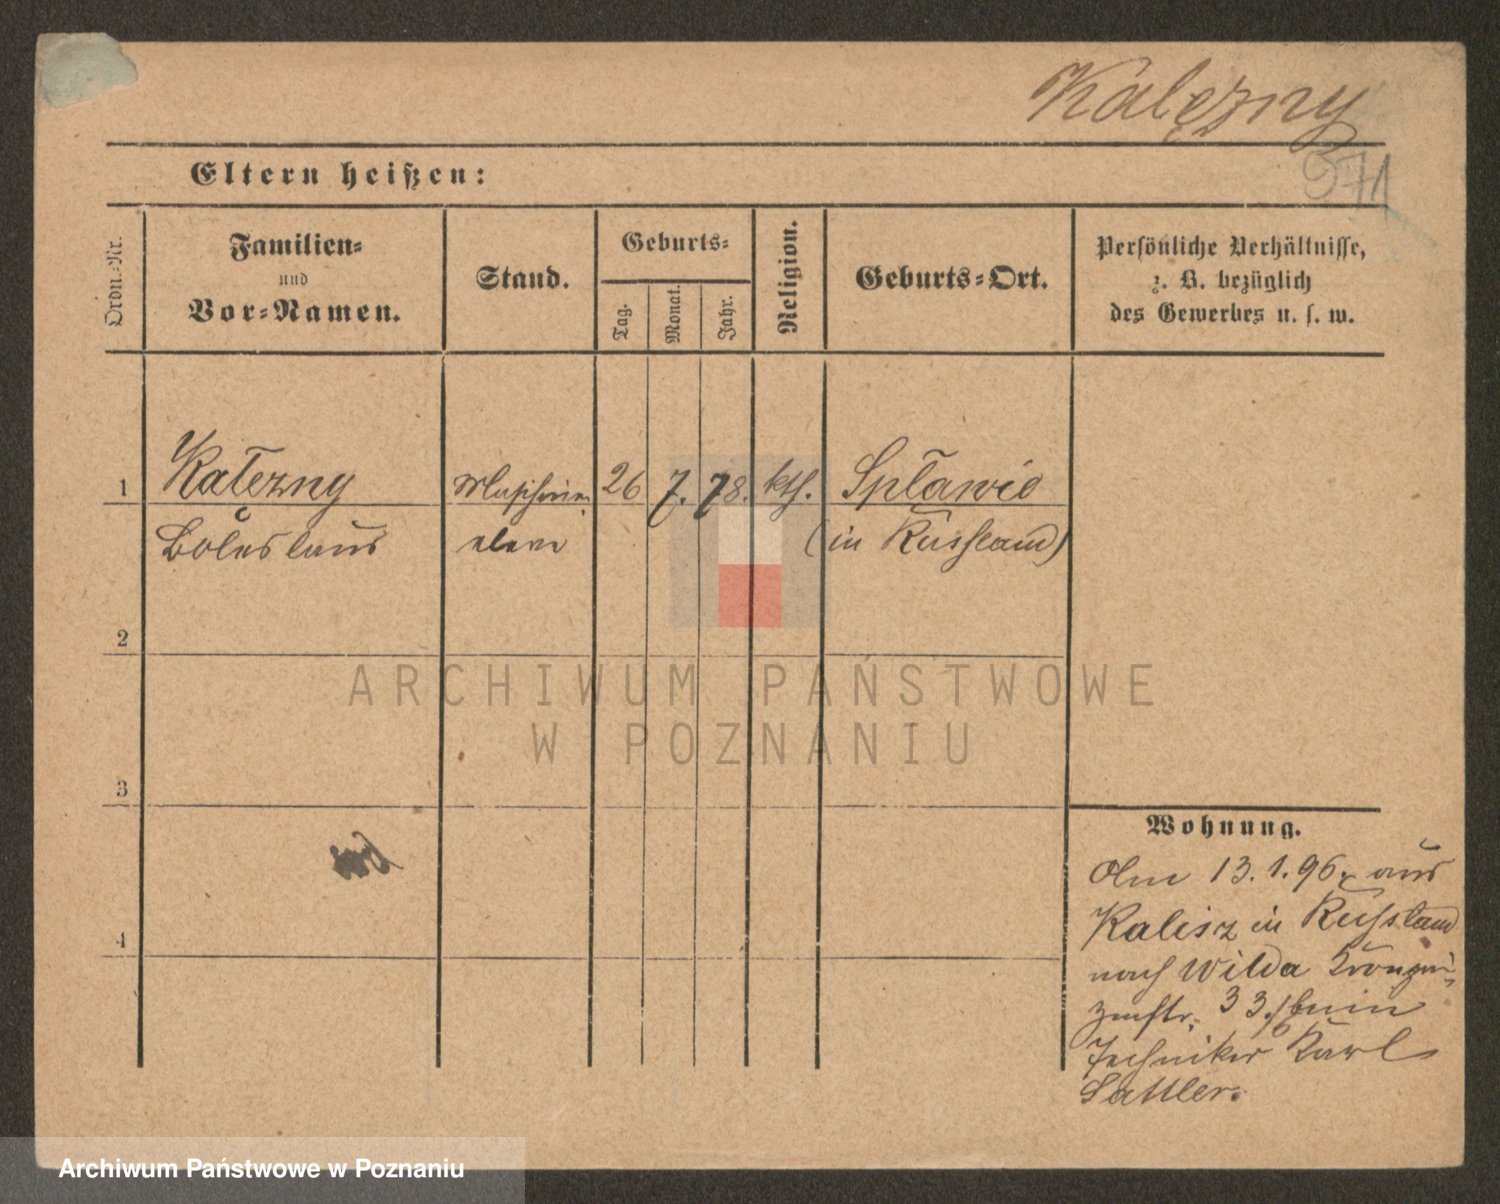 Kalęzny
371
Eltern heißen:
Ordn.-Nr.
Familien-
und
Vor-Namen.
Stand.
Geburts-
Tag.
Monat.
Jahr.
Religion.
Geburts-Ort.
Persönliche Verhältnisse,
z. B. bezüglich
des Gewerbes u. s. w.
1
Kalezny
Boleslaus
Maschinen
eleve
26
7.
78.
kth.
Spławie
(in Russland)
2
3
4
Wohnung.
Am 13.1.96. aus
Kalisz in Russland
nach Wilda Kronprin-
zenstr. 33./ beim
Techniker Karl
Sattler.
ARCHIWUM PAŃSTWOWE
W POZNANIU
Archiwum Państwowe w Poznaniu